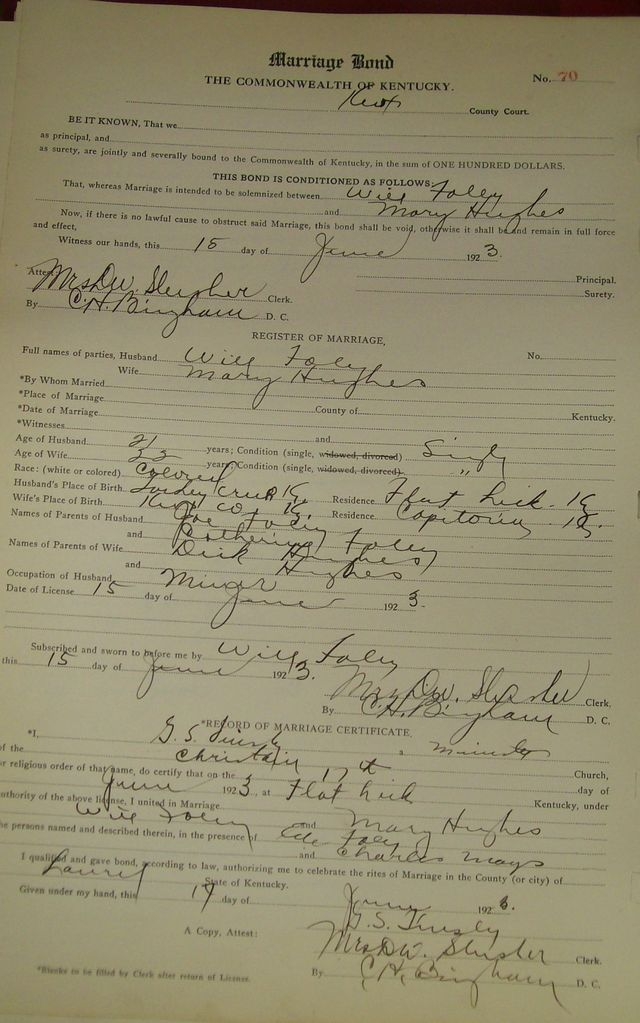 Marriage Bond
THE COMMONWEALTH OF KENTUCKY.
No. 70
Knox County Court.
BE IT KNOWN, That we
as principal, and
as surety, are jointly and severally bound to the Commonwealth of Kentucky, in the sum of ONE HUNDRED DOLLARS.
THIS BOND IS CONDITIONED AS FOLLOWS:
That, whereas Marriage is intended to be solemnized between Will Foley
and Mary Hughes
Now, if there is no lawful cause to obstruct said Marriage, this bond shall be void, otherwise it shall be and remain in full force
and effect,
Witness our hands, this 15 day of June 192 3.
Principal.
Attest Mrs. D.W. Slusher Clerk.
Surety.
By C.H. Bingham D. C.
REGISTER OF MARRIAGE,
Full names of parties, Husband Will Foley No.
Wife Mary Hughes
*By Whom Married
*Place of Marriage County of Kentucky.
*Date of Marriage
*Witnesses and
Age of Husband 21 years; Condition (single, widowed, divorced) Single
Age of Wife 23 years; Condition (single, widowed, divorced) "
Race: (white or colored) Colored
Husband's Place of Birth Ky Residence Flat Lick Ky
Wife's Place of Birth Knox Co. Ky. Residence Ky.
Names of Parents of Husband Joe Foley
and Catherine Foley
Names of Parents of Wife Dick Hughes
and Hughes
Occupation of Husband Miner
Date of License 15 day of June 192 3.
Subscribed and sworn to before me by Will Foley
this 15 day of June 192 3.
Mrs. D.W. Slusher Clerk,
By C.H. Bingham D. C.
*RECORD OF MARRIAGE CERTIFICATE.
*I, G. S. Tinsly a minister
of the Christian Church,
or religious order of that name, do certify that on the 17th day of
June 192 3, at Flat Lick Kentucky, under
authority of the above license, I united in Marriage
Will Foley and Mary Hughes
the persons named and described therein, in the presence of Foley
and Charles Mays
I qualified and gave bond, according to law, authorizing me to celebrate the rites of Marriage in the County (or city) of
Laurel State of Kentucky.
Given under my hand, this 19 day of June 192 3.
G. S. Tinsly
A Copy, Attest: Mrs. D.W. Slusher Clerk.
By C.H. Bingham D. C.
*Blanks to be filled by Clerk after return of License.